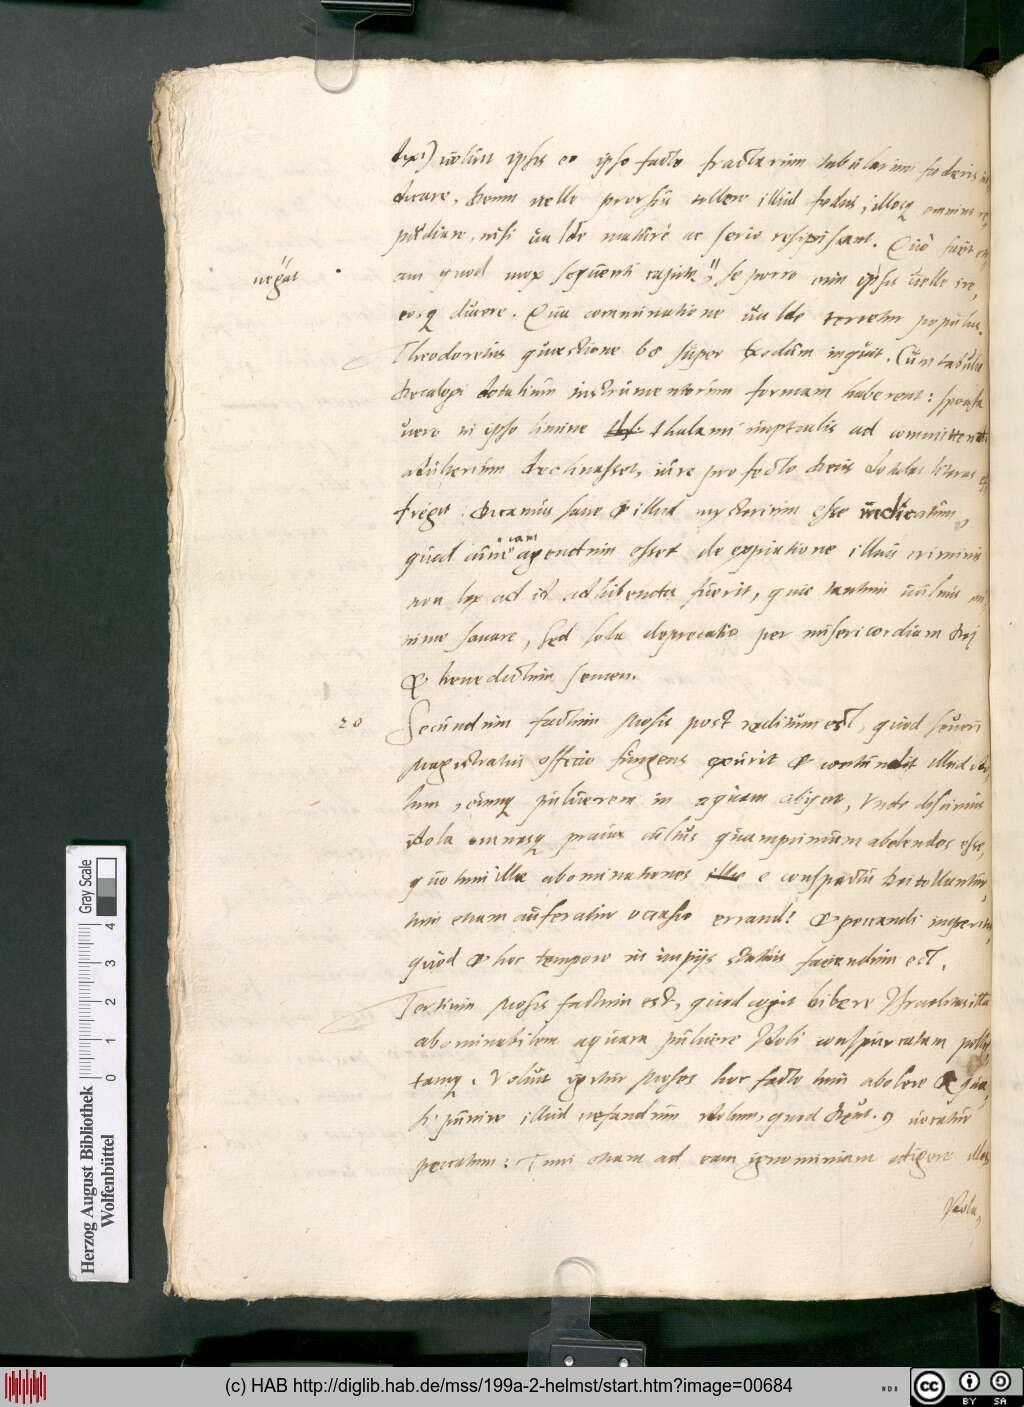 dixi) uoluit ipsis eo ipso facto fractarum tabularum foederis in
dicare, Deum uelle prorsus tollere illud foedus, illosq omnino re,
pudiare, nisi ualde mature ac serio resipiscant. Quo fuit eti
am quod mox sequenti capite se porro cum ipsis uelle ire,
negat
eosq ducere. Qua comminatione ualde terretur populus.
Theodoretus quaestione 68 super Exodum inquit. Cum tabulae
Decalogi dotalium instrumentorum formam haberent: sponsa
uero in ipso limine thalami nuptialis ad committendum
adulterium declinasset, iure profecto Deus
fregit. Dicamus sane & illud mysterium esse indicatum,
quod cum iam agendum esset de expiatione illius criminis
non lex ad id adhibenda fuerit, quae tantum uulnus mi
nime sanare, sed sola deprecatio per misericordiam Dei
& benedictum semen.
20 Secundum factum Mosis post reditum est, quod seueri
Magistratus officio fungens exurit & contundit illud ido,
lum, eiusq puluerem in aquam abijcit, Unde discimus
idola omnesq prauos cultus quamprimum abolendos esse,
quo tum illae abominationes e conspectu Dei tollantur,
tum etiam auferatur occasio errandi & peccandi imperitis,
quod & hoc tempore in impijs statuis faciendum est.
Tertium Mosis factum est, quod cogit bibere Israelitas illa
abominabilem aquam puluere Idoli conspurcatam pollu,
tamq. Voluit igitur Moses hoc facto tum abolere & qua,
si punire illud nefandum idolum, quod Deut. 9 uocatur
peccatum: Tum etiam ad eam ignominiam adigere illos
Idola,
Gray Scale
0 1 2 3 4
Herzog August Bibliothek
Wolfenbüttel
(c) HAB http://diglib.hab.de/mss/199a-2-helmst/start.htm?image=00684
cc BY SA